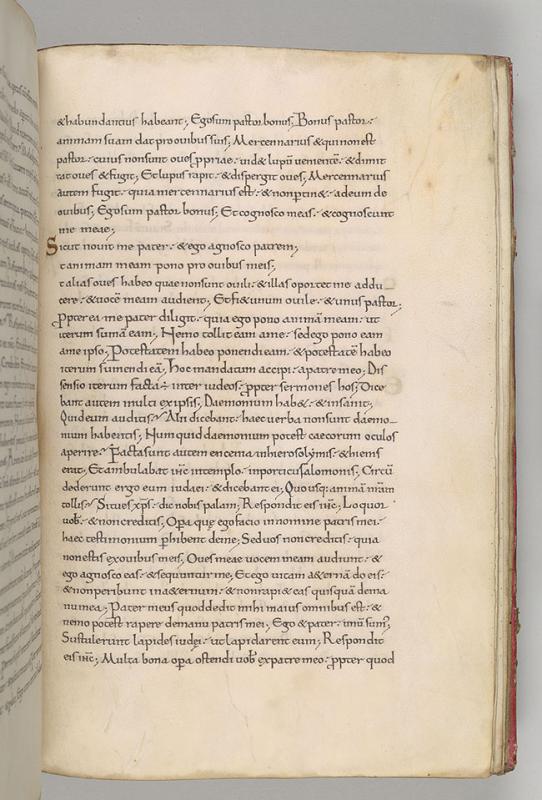 &habundantius habeant; Ego sum pastor bonus; Bonus pastor
animam suam dat pro ouibus suis; Mercennarius & qui non est
pastor cuius non sunt oues ppriae uid& lupũ uenientẽ & dimit
tat oues & fugit; Et lupus rapit & dispergit oues; Mercennarius
autem fugit quia mercennarius est & non p&tin& ad eum de
ouibus; Ego sum pastor bonus; Et cognosco meas & cognoscunt
me meae;
Sicut nouit me pater & ego agnosco patrem;
t animam meam pono pro ouibus meis;
t alias oues habeo quae non sunt ouili & illas oportet me addu
cere & uocẽ meam audient; Et fi& unum ouile & unus pastor;
Ppter ea me pater diligit quia ego pono animã meam ut
iterum sumã eam; Nemo tollit eam a me sed ego pono eam
a me ipso; Potestatem habeo ponendi eam & potestatẽ habeo
iterum sumendi eã; Hoc mandatum accipi a patre meo; Dis
sensio iterum facta ÷ inter iudeos ppter sermones hos; Dice
bant autem multi ex ipsis; Daemonium hab& & insanit;
Quid eum auditis? Alii dicebant haec uerba non sunt daemo
nium habentis; Numquid daemonium potest caecorum oculos
aperire? Facta sunt autem encenia in hierosolymis & hiems
erat; Et ambulabat ihc in templo in porticu salomonis; Circũ
dederunt ergo eum iudaei & dicebant ei; Quo usq; animã nr̃am
tollis? Si tu es xps dic nobis palam; Respondit eis ihc; Loquor
uob & non creditis; Opa quę ego facio in nomine patris mei
haec testimonium phibent de me; Sed uos non creditis quia
non estis ex ouibus meis; Oues meae uocem meam audiunt &
ego agnosco eas & sequuntur me; Et ego uitam a&ernã do eis
& non peribunt in a&ernum & non rapi& eas quisquã de ma
nu mea; Pater meus quod dedit mihi maius omnibus est &
nemo potest rapere de manu patris mei; Ego & pater unũ sum;
Sustulerunt lapides iudęi ut lapidarent eum; Respondit
eis ihc; Multa bona opa ostendi uob ex patre meo ppter quod